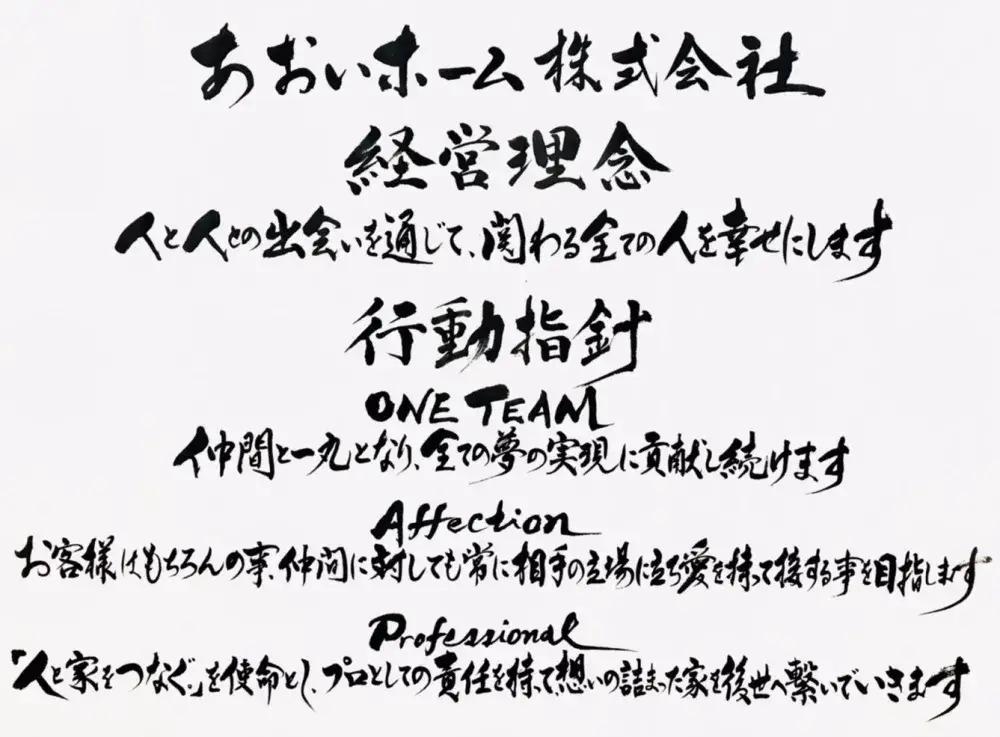 あおいホーム株式会社
経営理念
人と人との出会いを通じて、関わる全ての人を幸せにします
行動指針
ONE TEAM
仲間と一丸となり、全ての夢の実現に貢献し続けます
Affection
お客様はもちろんの事、仲間に対しても常に相手の立場に立ち愛を持って接する事を目指します
Professional
「人と家をつなぐ。」を使命とし、プロとしての責任を持って想いの詰まった家を後世へ繋いでいきます